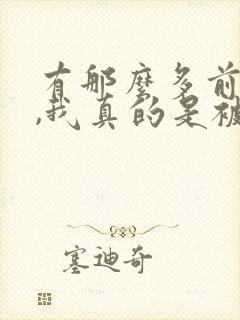 有那麼多前
,我真的是被
塞迪奇